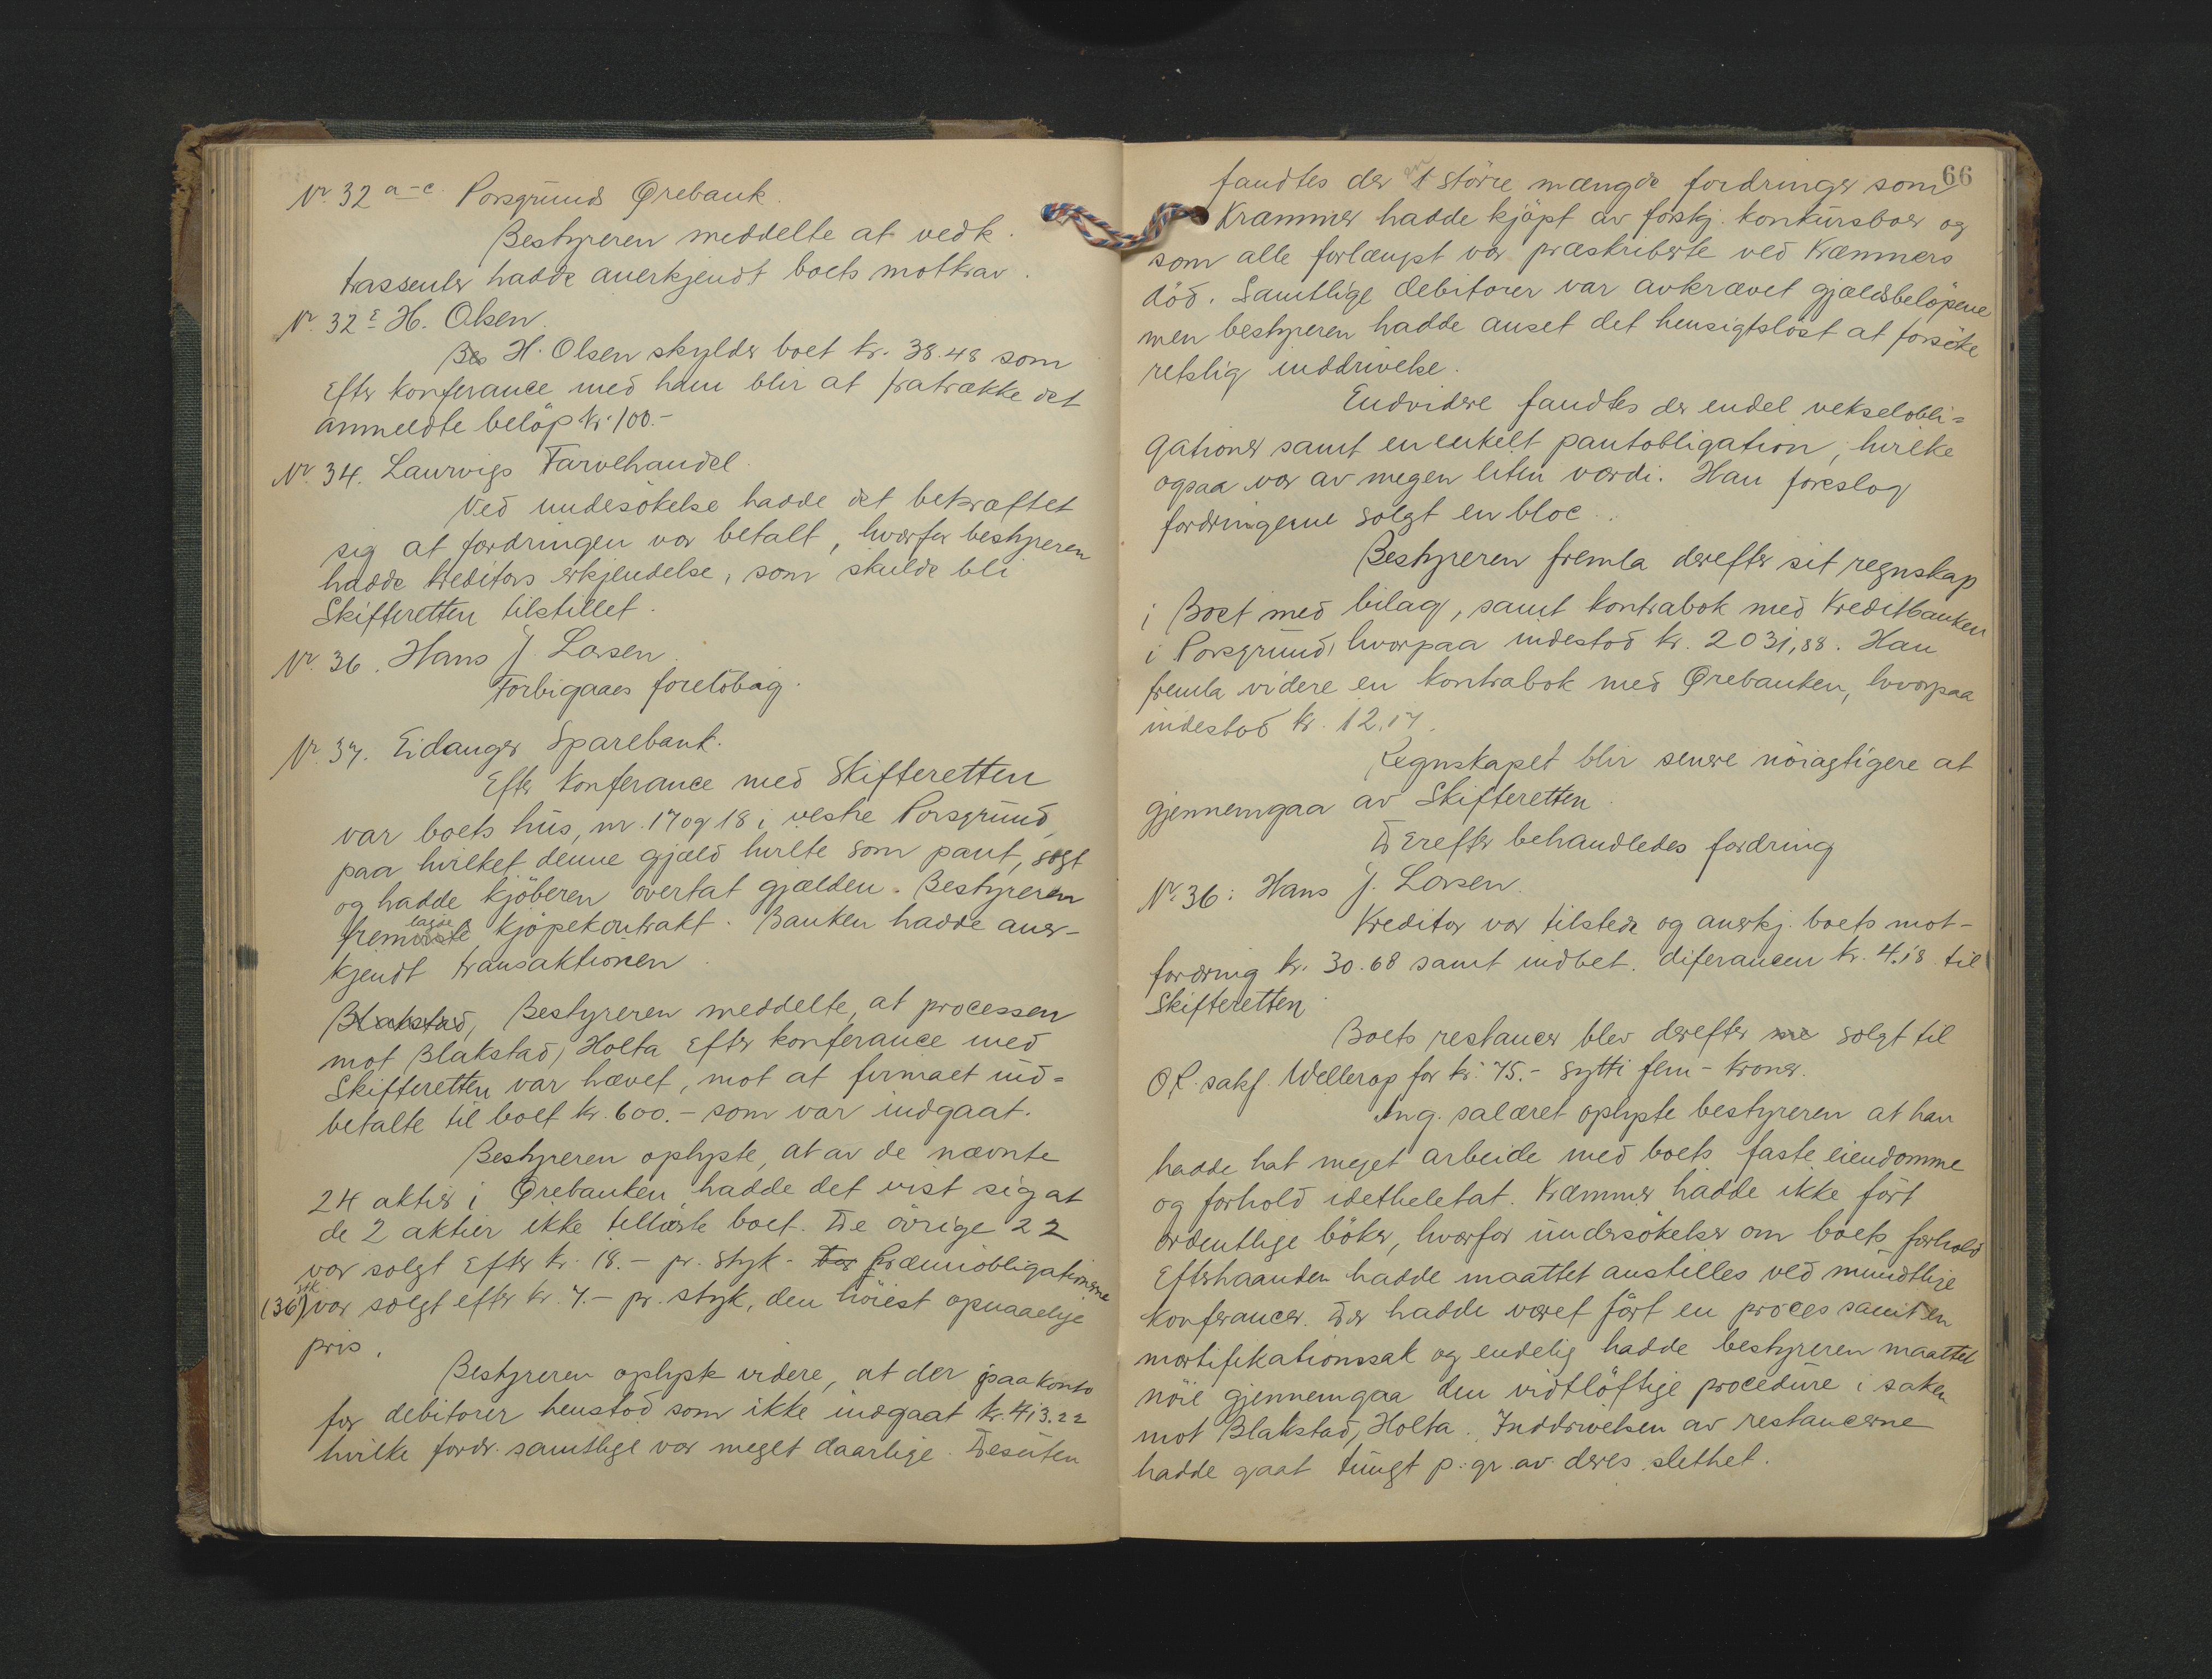 Nr. 32 a-c. Porsgrunds Ørebank.
Bestyreren meddelte at vedk.
trassenter hadde anerkjendt boets motkrav.
Nr. 32 E H. Olsen.
Bes H. Olsen skylder boet kr. 38.48 som
Efter konferance med ham blir at fratrække det
anmeldte belöp kr. 100.-
Nr. 34. Laurvigs Farvehandel.
Ved undersökelse hadde det bekræftet
sig at fordringen var betalt, hvorfor bestyreren
hadde kreditors erkjendelse, som skulde bli
Skifteretten tilstillet.
Nr. 36. Hans J. Larsen.
Forbigaaes forelöbig.
Nr. 37. Eidanger Sparebank.
Efter konferance med Skifteretten
var boets hus, nr. 17 og 18 i vestre Porsgrund,
paa hvilket denne gjæld hvilte som pant, solgt
og hadde kjöberen overtat gjælden. Bestyreren
lagde
fremviste kjöpekontrakt. Banken hadde aner-
kjendt transaktionen.
Blakstad, Bestyreren meddelte, at processen
mot Blakstad, Holta Efter konferance med
Skifteretten var hævet, mot at firmaet ind=
betalte til boet kr. 600.- som var indgaat.
Bestyreren oplyste, at av de nævnte
24 aktier i Ørebanken hadde det vist sig at
de 2 aktier ikke tilhörte boet. De övrige 22
var solgt Efter kr. 18.- pr. styk. Præmieobligationerne
stk
(36) var solgt efter kr. 7.- pr. styk, den höiest opnaaelige
pris.
Bestyreren oplyste videre, at der paa konto
for debitorer henstod som ikke indgaat kr. 413.22
hvilke fordr. samtlige var meget daarlige. Desuten
66
fandtes der en större mængde fordringer som
Kræmmer hadde kjöpt av forskj. konkursboer og
som alle forlængst var præskriberte ved Kræmmers
död. Samtlige debitorer var avkrævet gjældsbelöpene
men bestyreren hadde anset det hensigtslöst at forsöke
retslig inddrivelse.
Endvidere fandtes der endel vekselobli=
gationer samt en enkelt pantobligation, hvilke
ogsaa var av megen liten værdi. Han foreslog
fordringerne solgt en bloc.
Bestyreren fremla derefter sit regnskap
i Boet med bilag, samt kontrabok med Kreditbanken
i Porsgrund, hvorpaa indestod kr. 2031,88. Han
fremla videre en kontrabok med Ørebanken, hvorpaa
indestod kr. 12.17.
Regnskapet blir senere nöiagtigere at
gjennemgaa av Skifteretten.
Derefter behandledes fordring
Nr. 36: Hans J. Larsen.
Kreditor var tilstede og anerkj. boets mot-
fordring kr. 30.68 samt indbet. diferancen kr. 4.18 til
Skifteretten.
Boets restancer blev derefter solgt til
O.R. sakf. Wellerop for kr. 75.- sytti fem - kroner.
Ang. salæret oplyste bestyreren at han
hadde hat meget arbeide med boets faste eiendomme
og forhold idetheletat. Kræmmer hadde ikke fört
ordentlige böker, hvorfor undersökelser om boets forhold
Efterhaanden hadde maattet anstilles ved mundtlige
konferancer. Der hadde været fört en proces samt en
mortifikationssak og endelig hadde bestyreren maattet
nöie gjennemgaa den vidtlöftige procedure i saken
mot Blakstad, Holta. Inddrivelsen av restancerne
hadde gaat tungt p. gr. av deres slethet.